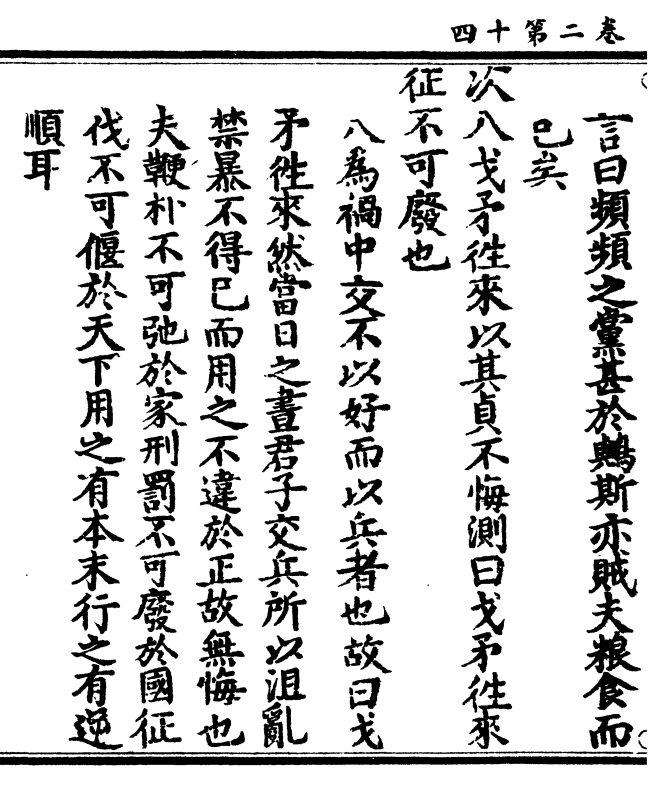 卷二第十四
言曰頻頻之黨甚於鷡斯亦賊夫粮食而
已矣
次八戈矛徃來以其貞不悔測曰戈矛徃來
征不可廢也
八為禍中交不以好而以兵者也故曰戈
矛徃來然當日之晝君子交兵所以沮亂
禁暴不得已而用之不違於正故無悔也
夫鞭朴不可弛於家刑罰不可廢於國征
伐不可偃於天下用之有本末行之有逆
順耳